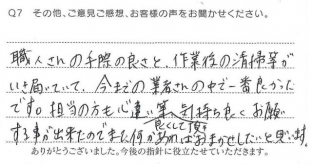 Q7 その他、ご意見ご感想、お客様の声をお聞かせください。
職人さんの手際の良さと、作業後の清掃等が
いき届いていて、今までの業者さんの中で一番良かった
です。担当の方も心遣い等、気持ち良くお願い
良くして頂
する事が出来たのでまた何かあればおまかせしたいと思います。
ありがとうございました。今後の指針に役立たせていただきます。